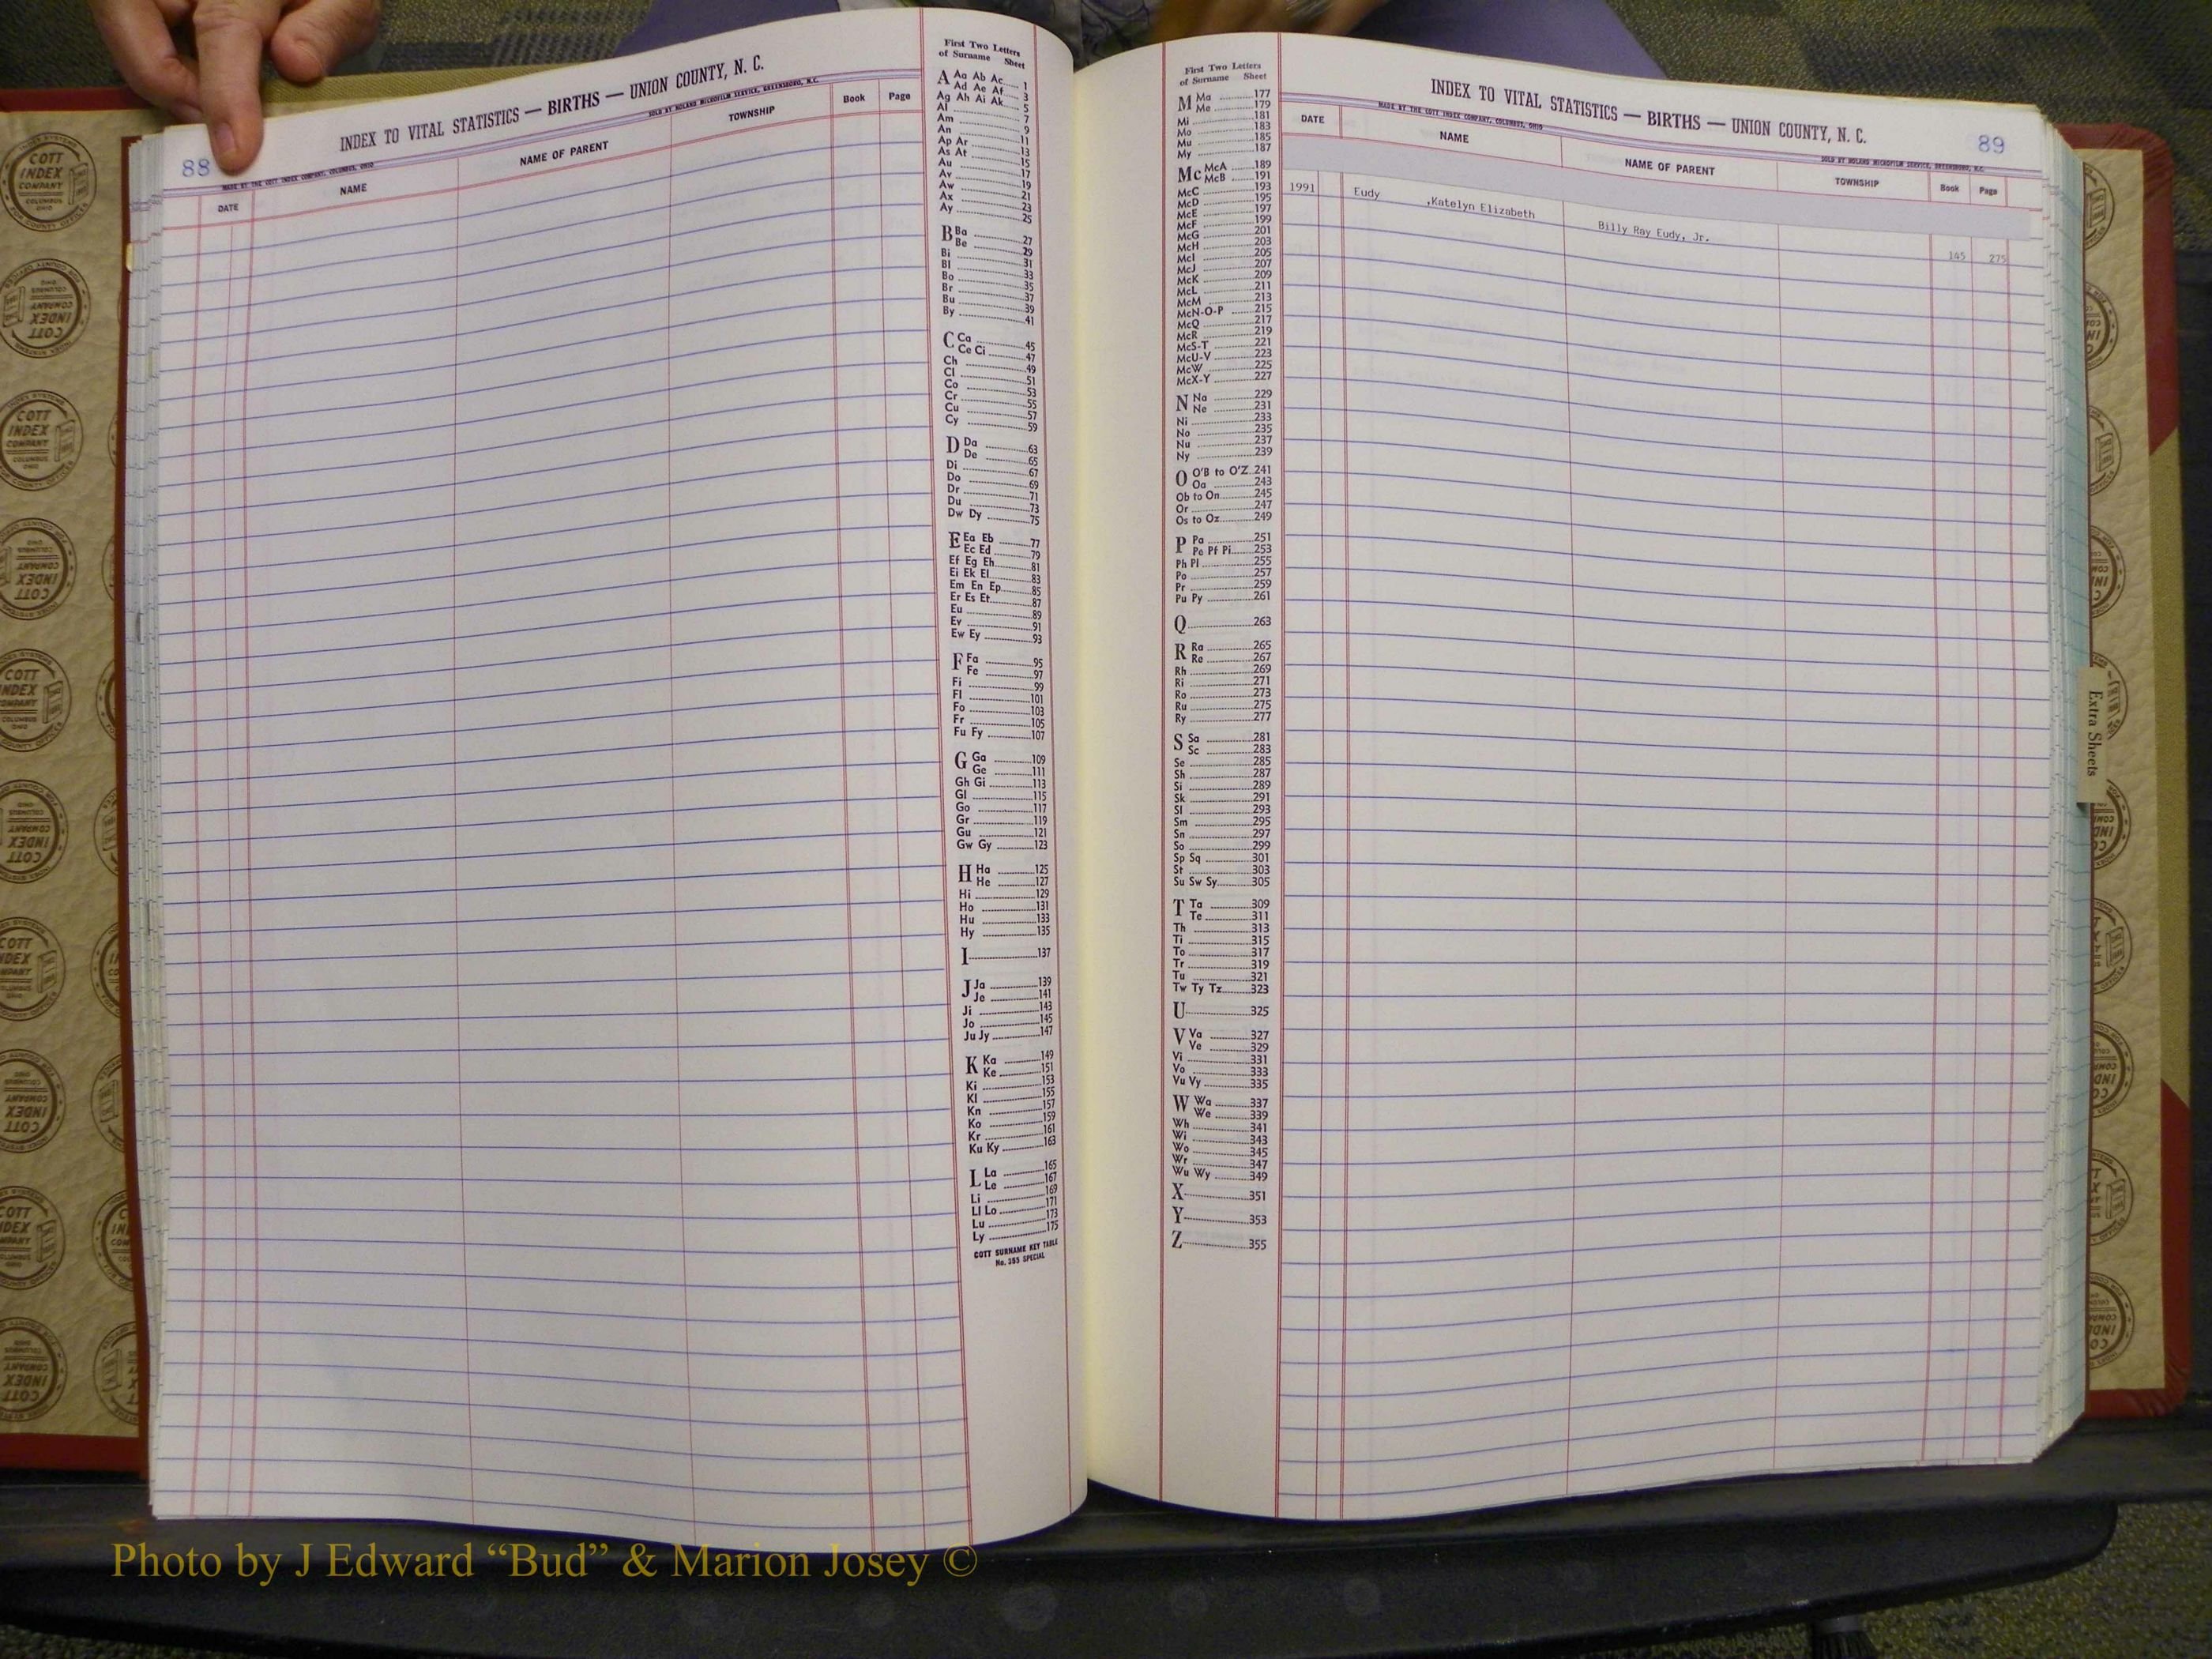 88
INDEX TO VITAL STATISTICS — BIRTHS — UNION COUNTY, N. C.
MADE BY THE COTT INDEX COMPANY, COLUMBUS, OHIO
SOLD BY NOLAND MICROFILM SERVICE, GREENSBORO, N.C.
DATE NAME NAME OF PARENT TOWNSHIP Book Page
First Two Letters
of Surname Sheet
A Aa Ab Ac 1
Ad Ae Af 3
Ag Ah Ai Ak 5
Al 7
Am 9
An 11
Ap Ar 13
As At 15
Au 17
Av 19
Aw 21
Ax 23
Ay 25
B Ba 27
Be 29
Bi 31
Bl 33
Bo 35
Br 37
Bu 39
By 41
C Ca 45
Ce Ci 47
Ch 49
Cl 51
Co 53
Cr 55
Cu 57
Cy 59
D Da 63
De 65
Di 67
Do 69
Dr 71
Du 73
Dw Dy 75
E Ea Eb 77
Ec Ed 79
Ef Eg Eh 81
Ei Ek El 83
Em En Ep 85
Er Es Et 87
Eu 89
Ev 91
Ew Ey 93
F Fa 95
Fe 97
Fi 99
Fl 101
Fo 103
Fr 105
Fu Fy 107
G Ga 109
Ge 111
Gh Gi 113
Gl 115
Go 117
Gr 119
Gu 121
Gw Gy 123
H Ha 125
He 127
Hi 129
Ho 131
Hu 133
Hy 135
I 137
J Ja 139
Je 141
Ji 143
Jo 145
Ju Jy 147
K Ka 149
Ke 151
Ki 153
Kl 155
Kn 157
Ko 159
Kr 161
Ku Ky 163
L La 165
Le 167
Li 169
Ll Lo 171
Lu 173
Ly 175
COTT SURNAME KEY TABLE
No. 355 SPECIAL
First Two Letters
of Surname Sheet
M Ma 177
Me 179
Mi 181
Mo 183
Mu 185
My 187
Mc McA 189
McB 191
McC 193
McD 195
McE 197
McF 199
McG 201
McH 203
McI 205
McJ 207
McK 209
McL 211
McM 213
McN-O-P 215
McQ 217
McR 219
McS-T 221
McU-V 223
McW 225
McX-Y 227
N Na 229
Ne 231
Ni 233
No 235
Nu 237
Ny 239
O O'B to O'Z 241
Oa 243
Ob to On 245
Or 247
Os to Oz 249
P Pa 251
Pe Pf Pi 253
Ph Pl 255
Po 257
Pr 259
Pu Py 261
Q 263
R Ra 265
Re 267
Rh 269
Ri 271
Ro 273
Ru 275
Ry 277
S Sa 281
Sc 283
Se 285
Sh 287
Si 289
Sk 291
Sl 293
Sm 295
Sn 297
So 299
Sp Sq 301
St 303
Su Sw Sy 305
T Ta 309
Te 311
Th 313
Ti 315
To 317
Tr 319
Tu 321
Tw Ty Tz 323
U 325
V Va 327
Ve 329
Vi 331
Vo 333
Vu Vy 335
W Wa 337
We 339
Wh 341
Wi 343
Wo 345
Wr 347
Wu Wy 349
X 351
Y 353
Z 355
INDEX TO VITAL STATISTICS — BIRTHS — UNION COUNTY, N. C.
89
MADE BY THE COTT INDEX COMPANY, COLUMBUS, OHIO
SOLD BY NOLAND MICROFILM SERVICE, GREENSBORO, N.C.
DATE NAME NAME OF PARENT TOWNSHIP Book Page
1991 Eudy ,Katelyn Elizabeth Billy Ray Eudy, Jr. 145 275
Extra Sheets
COTT
INDEX
COMPANY
COLUMBUS
OHIO
Photo by J Edward “Bud” & Marion Josey ©